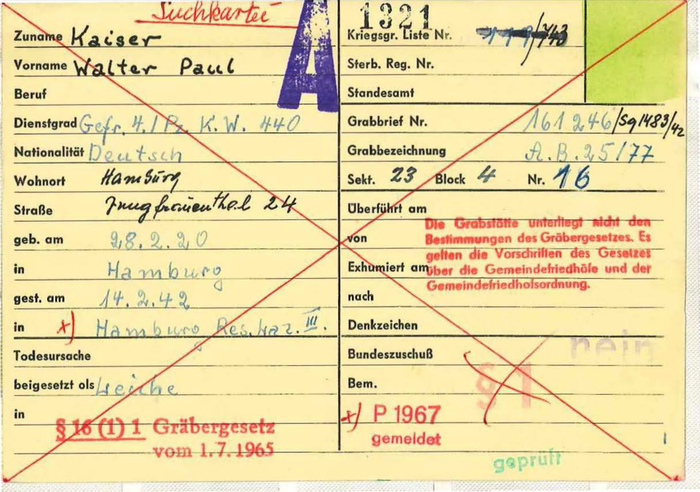 Suchkartei
A
1321
Zuname Kaiser
Vorname Walter Paul
Beruf
Dienstgrad Gefr. 4./Pz. K.W. 440
Nationalität Deutsch
Wohnort Hamburg
Straße Jungfrauenthal 24
geb. am 28.2.20
in Hamburg
gest. am 14.2.42
in x) Hamburg Res. Laz. III.
Todesursache
beigesetzt als Leiche
in
§ 16 (1) 1 Gräbergesetz
vom 1.7.1965
Kriegsgr. Liste Nr. /743
Sterb. Reg. Nr.
Standesamt
Grabbrief Nr. 161246/Sg1483/42
Grabbezeichnung A.B. 25/77
Sekt. 23 Block 4 Nr. 16
Überführt am
von
Die Grabstätte unterliegt nicht den
Bestimmungen des Gräbergesetzes. Es
gelten die Vorschriften des Gesetzes
über die Gemeindefriedhöfe und der
Gemeindefriedhofsordnung.
Exhumiert am
nach
Denkzeichen
Bundeszuschuß nein
Bem. § 1
x) P 1967
gemeldet
geprüft